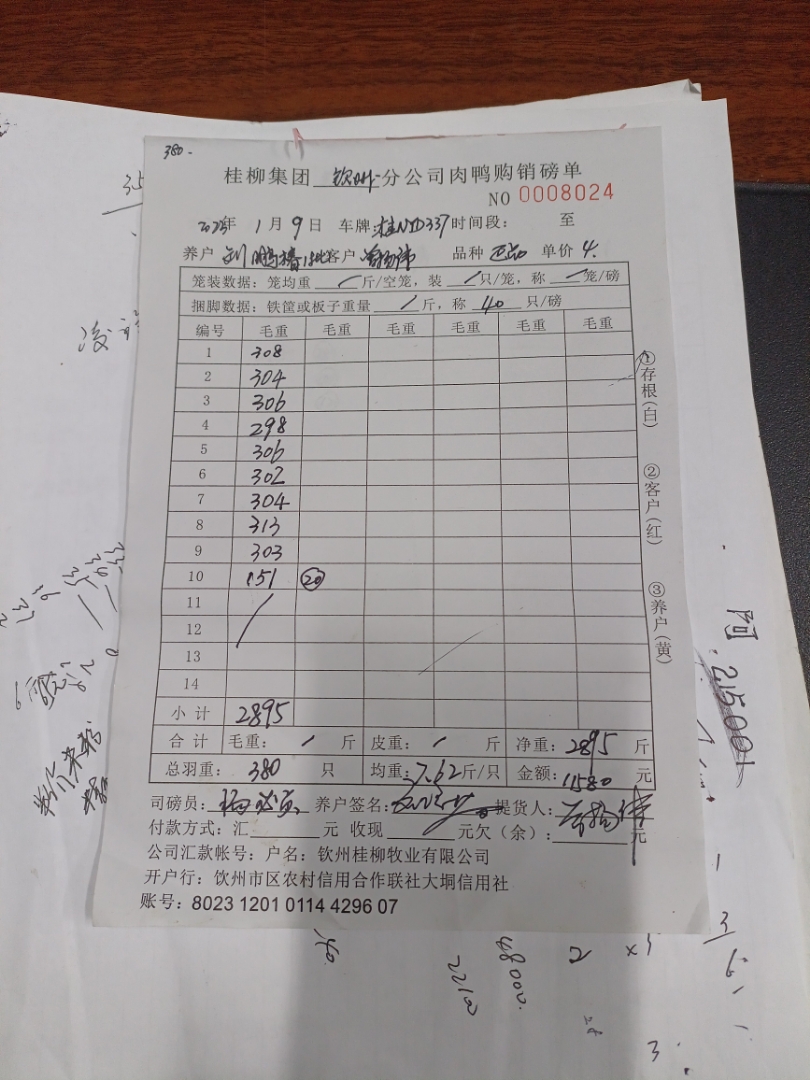 380.
桂柳集团 钦州 分公司肉鸭购销磅单
NO 0008024
2023年 1月9日 车牌:桂ND337 时间段: 至
养户 客户 品种 单价 4.
笼装数据:笼均重 / 斤/空笼,装 / 只/笼,称 / 笼/磅
捆脚数据:铁筐或板子重量 / 斤,称 40 只/磅
编号 毛重 毛重 毛重 毛重 毛重 毛重
1 308
2 304
3 306
4 298
5 306
6 302
7 304
8 313
9 303
10 151 20
11
12
13
14
小计 2895
合计 毛重: / 斤 皮重: / 斤 净重: 2895 斤
总羽重: 380 只 均重: 7.62 斤/只 金额: 11580 元
司磅员: 养户签名: 提货人:
付款方式:汇 元 收现 元欠(余): 元
公司汇款帐号:户名:钦州桂柳牧业有限公司
开户行:钦州市区农村信用合作联社大垌信用社
账号:8023 1201 0114 4296 07
①存根(白)
②客户(红)
③养户(黄)
35
阿
215001
48000
2210
2
x3
3